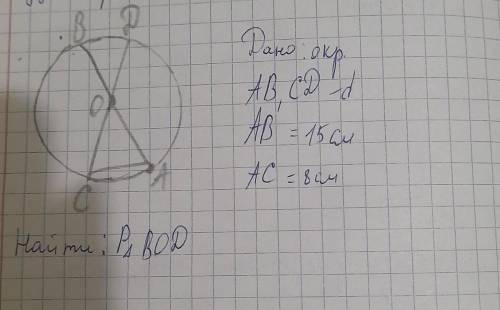 B D
Дано: окр.
AB, CD - d
O
AB = 15 см
AC = 8 см
A
C
Найти: P△ BOD